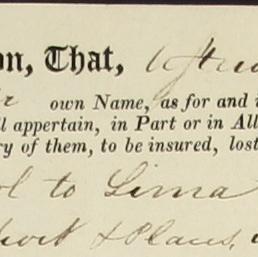 on, That,
own Name, as for and i
ll appertain, in Part or in All
ry of them, to be insured, lost
ol to Lima
Port & Places,